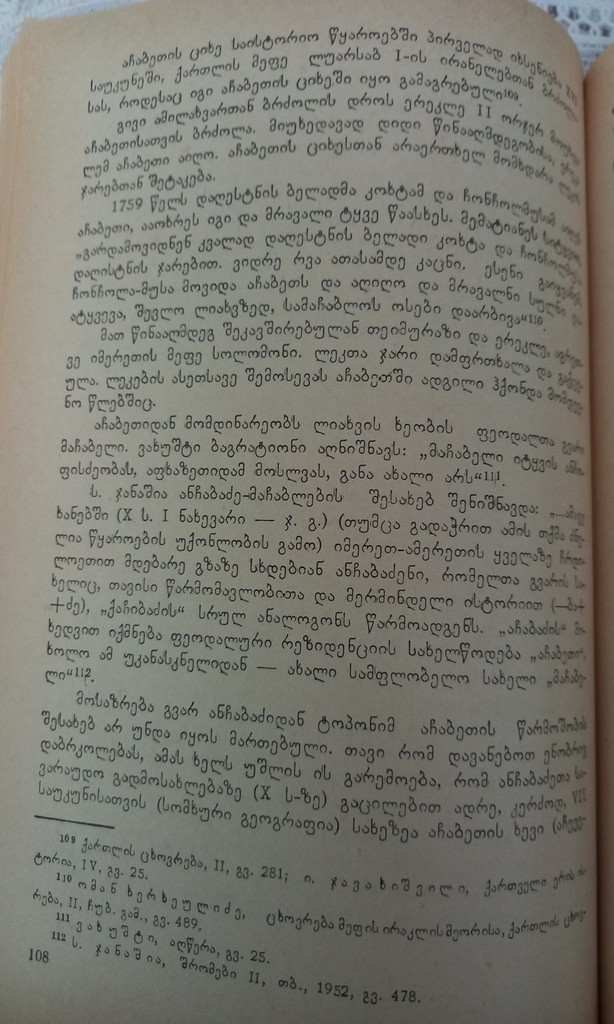 აჩაბეთის ციხე საისტორიო წყაროებში პირველად იხსენიება XVI
საუკუნეში, ქართლის მეფე ლუარსაბ I-ის ირანელებთან
სას, როდესაც იგი აჩაბეთის ციხეში იყო გამაგრებული¹⁰⁹.
გივი ამილახვართან ბრძოლის დროს ერეკლე II ორჯერ
აჩაბეთისათვის ბრძოლა. მიუხედავად დიდი წინააღმდეგობისა,
ლემ აჩაბეთი აიღო. აჩაბეთის ციხესთან არაერთხელ მომხდარა
ჯარებთან შეტაკება.
1759 წელს დაღესტნის ბელადმა კოხტამ და ჩონჩოლმუსამ
აჩაბეთი, ააოხრეს იგი და მრავალი ტყვე წაასხეს. მემატიანეს
„გარდამოვიდნენ კვალად დაღესტნის ბელადი კოხტა და
დაღისტნის ჯარებით. ვიდრე რვა ათასამდე კაცნი. ესენი
ჩონჩოლა-მუსა მოვიდა აჩაბეთს და აღიღო და მრავალნი სულნი და
ატყვევა, შევლო ლიახვზედ, სამაჩაბლოს ოსები დაარბივა“¹¹⁰.
მათ წინააღმდეგ შეკავშირებულან თეიმურაზი და ერეკლე,
ვე იმერეთის მეფე სოლომონი. ლეკთა ჯარი დამფრთხალა და
ულა. ლეკების ასეთსავე შემოსევას აჩაბეთში ადგილი ჰქონდა
ნო წლებშიც.
აჩაბეთიდან მომდინარეობს ლიახვის ხეობის ფეოდალთა გვარი
მაჩაბელი. ვახუშტი ბაგრატიონი აღნიშნავს: „მაჩაბელი იტყვის
ფისძეობას, აფხაზეთიდამ მოსლვას, განა ახალი არს“¹¹¹.
ს. ჯანაშია ანჩაბაძე-მაჩაბლების შესახებ შენიშნავდა:
ხანებში (X ს. I ნახევარი — ჯ. გ.) (თუმცა გადაჭრით ამის თქმა
ლია წყაროების უქონლობის გამო) იმერეთ-ამერეთის ყველაზე
ლოეთით მდებარე გზაზე სხდებიან ანჩაბაძენი, რომელთა გვარის სა-
ხელიც, თავისი წარმომავლობითა და მერმინდელი ისტორიით (—ბა+
+ძე), „ქაჩიბაძის“ სრულ ანალოგონს წარმოადგენს. „აჩაბაძის“ მი-
ხედვით იქმნება ფეოდალური რეზიდენციის სახელწოდება „აჩაბეთი“,
ხოლო ამ უკანასკნელიდან — ახალი სამფლობელო სახელი „მაჩაბე-
ლი“¹¹².
მოსაზრება გვარ ანჩაბაძიდან ტოპონიმ აჩაბეთის წარმოშობის
შესახებ არ უნდა იყოს მართებული. თავი რომ დავანებოთ ენობრივ
დაბრკოლებას, ამას ხელს უშლის ის გარემოება, რომ ანჩაბაძეთა სა-
ვარაუდო გადმოსახლებაზე (X ს-ზე) გაცილებით ადრე, კერძოდ, VII
საუკუნისათვის (სომხური გეოგრაფია) სახეზეა აჩაბეთის ხევი
¹⁰⁹ ქართლის ცხოვრება, II, გვ. 281; ი. ჯავახიშვილი, ქართველი ერის ის-
ტორია, IV, გვ. 25.
¹¹⁰ ომან ხერხეულიძე, ცხოვრება მეფის ირაკლის მეორისა, ქართლის ცხოვ-
რება, II, ჩუბ. გამ., გვ. 489.
¹¹¹ ვახუშტი, აღწერა, გვ. 25.
¹¹² ს. ჯანაშია, შრომები II, თბ., 1952, გვ. 478.
108